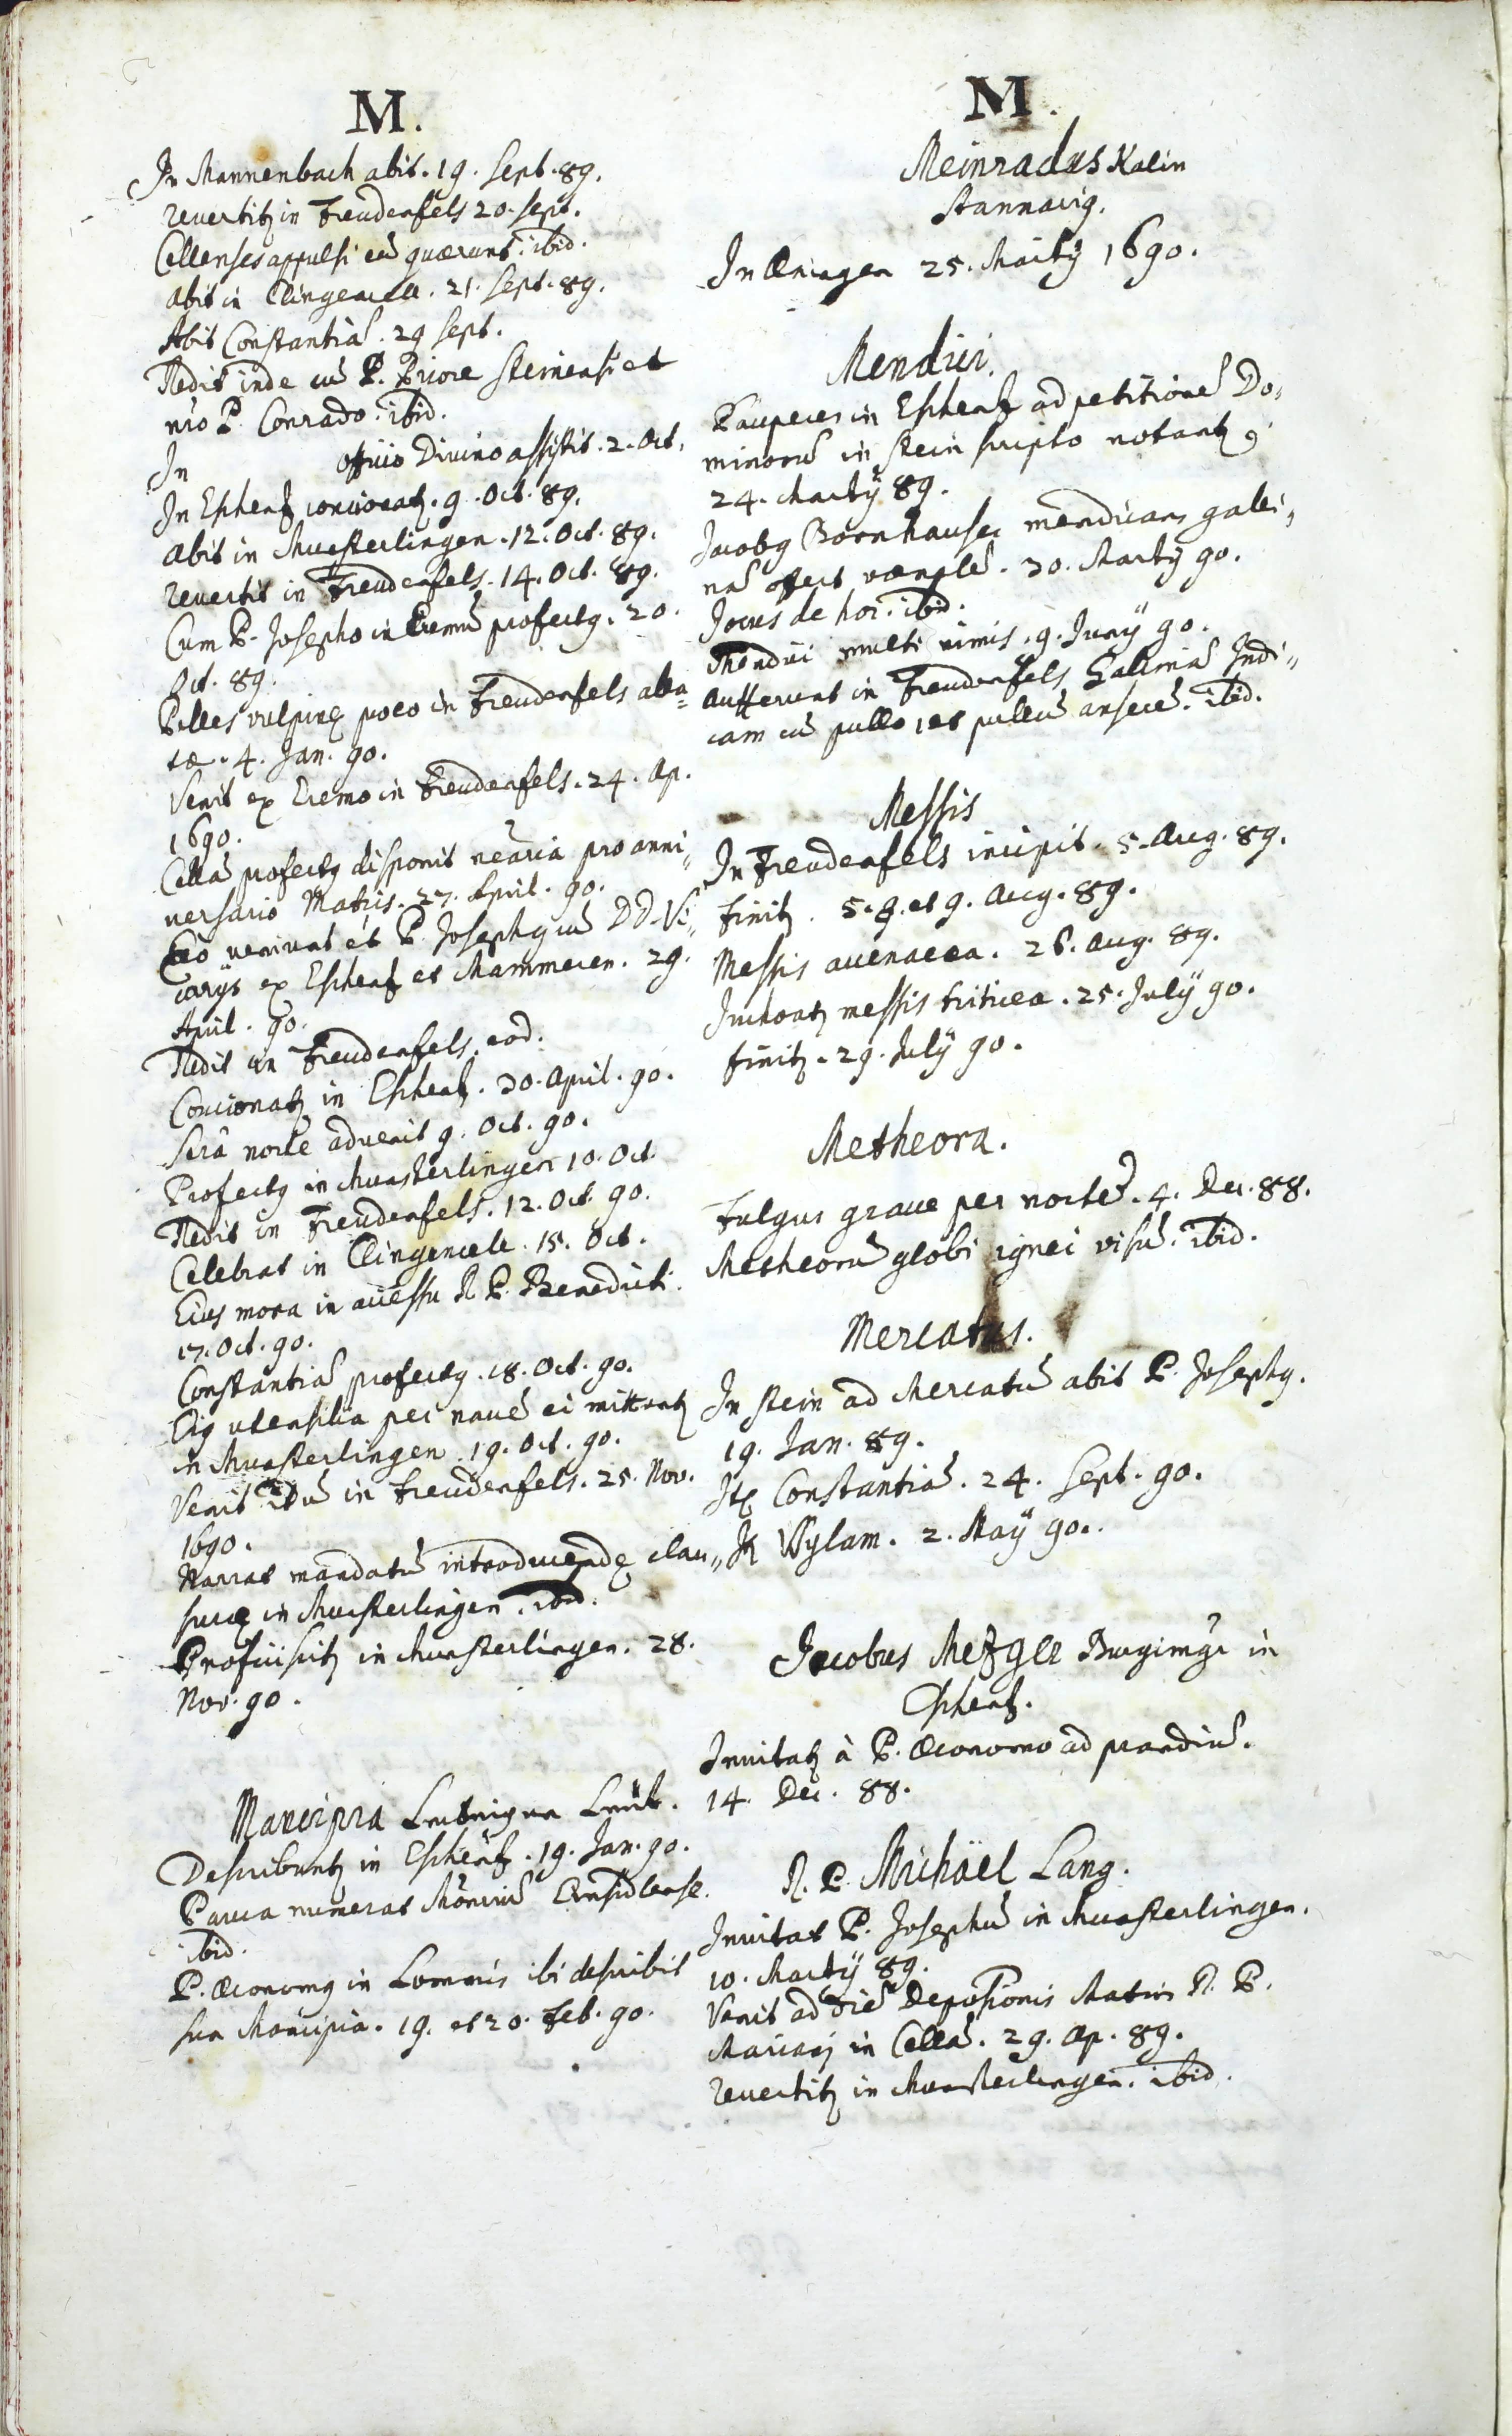 M.
In Mannenbach abit. 19. Sept. 89.
revertitʒ in Freudenfels 20. Sept.
Cellenses appulsi eū quærunt. ibid.
Abit in Clingencell. 21. Sept. 89.
Abit Constantiā. 29 Sept.
Redit inde cū P. Priore Steinensi et
nr̄o P. Conrado. ibid.
In officio Divino assistit. 2. Oct.
In Eschenʒ concionatʒ. 9. Oct. 89.
Abit in Munsterlingen. 12. Oct. 89.
revertit in Freudenfels. 14. Oct. 89.
Cum P. Josepho in Eremū profectꝰ. 20.
Oct. 89.
Pelles vulpinę pro eo in Freudenfels alla=
tæ. 4. Jan. 90.
Venit ex Eremo in Freudenfels. 24. Ap.
1690.
Cellā profectꝰ disponit nec̄aria pro anni„
versario Matris. 27. April. 90.
Eò veniunt et P. Josephꝰ cū DD. Vi„
carijs ex Eschenʒ et Mammeren. 29.
April. 90.
Redit in Freudenfels. eod.
Concionatʒ in Eschenʒ. 30. April. 90.
Serâ nocte advenit 9. Oct. 90.
Profectꝰ in Munsterlingen 10. Oct
Redit in Freudenfels. 12. Oct. 90.
Celebrat in Clingencell. 15. Oct.
Eius mora in accessu R. P. Benedicti.
17. Oct. 90.
Constantiā profectꝰ. 18. Oct. 90.
Eiꝰ utensilia per navē ei mittuntʒ
in Munsterlingen. 19. Oct. 90.
Venit itĕrū in Freudenfels. 25. Nov.
1690.
Narrat mandatū introducendę clau„
surę in Munsterlingen. ibid.
Proficiscitʒ in Munsterlingen. 28.
Nov. 90.
Mancipia Leibeigne Leüt.
Describuntʒ in Eschenʒ. 19. Jan. 90.
Pauca numerat Mōn̄riū Einsidlense.
ibid.
P. Œconomꝰ in Lommis ibi describit
sua Mancipia. 19. et 20. Feb. 90.
M.
Meinradus Kalin
Stannariꝰ.
In Œningen 25. Martij 1690.
Mendici.
Pauperes in Eschenʒ ad petitionē Do„
minorū in Stein scripto notantʒ
24. Martij 89.
Jacobꝰ Bornhauser mendicans galli„
nā offert vænalē. 30. Martij 90.
Jocus de hoc. ibid.
Mendici multi nimis. 9. Junij 90.
Aufferunt in Freudenfels Galinā Indi„
cam cū pullo, et pullū anserē. ibid.
Messis
In Freudenfels incipit. 5. Aug. 89.
finitʒ. 5. 8. et 9. Aug. 89.
Messis avenacea. 26. Aug. 89.
Inchoatʒ messis triticea. 25. Julij 90.
finitʒ. 29. Julij 90.
Metheora.
Fulgur grave per noctē. 4. Dec. 88.
Metheorū globi ignei visū. ibid.
Mercatus.
In Stein ad Mercatū abit P. Josephꝰ.
19. Jan. 89.
Itē Constantiā. 24. Sept. 90.
It̄ Wylam. 2. Maij 90.
Jacobus Metzger Burgimgr in
Eschenʒ.
Invitatʒ à P. Œconomo ad prandiū.
14. Dec. 88.
R. P. Michäel Lang.
Invitat P. Josephū in Munsterlingen.
10. Martij 89.
Venit ad diē Depositionis Matris R. P.
Mariani in Cellā. 29. Ap. 89.
revertitʒ in Munsterlingen. ibid.